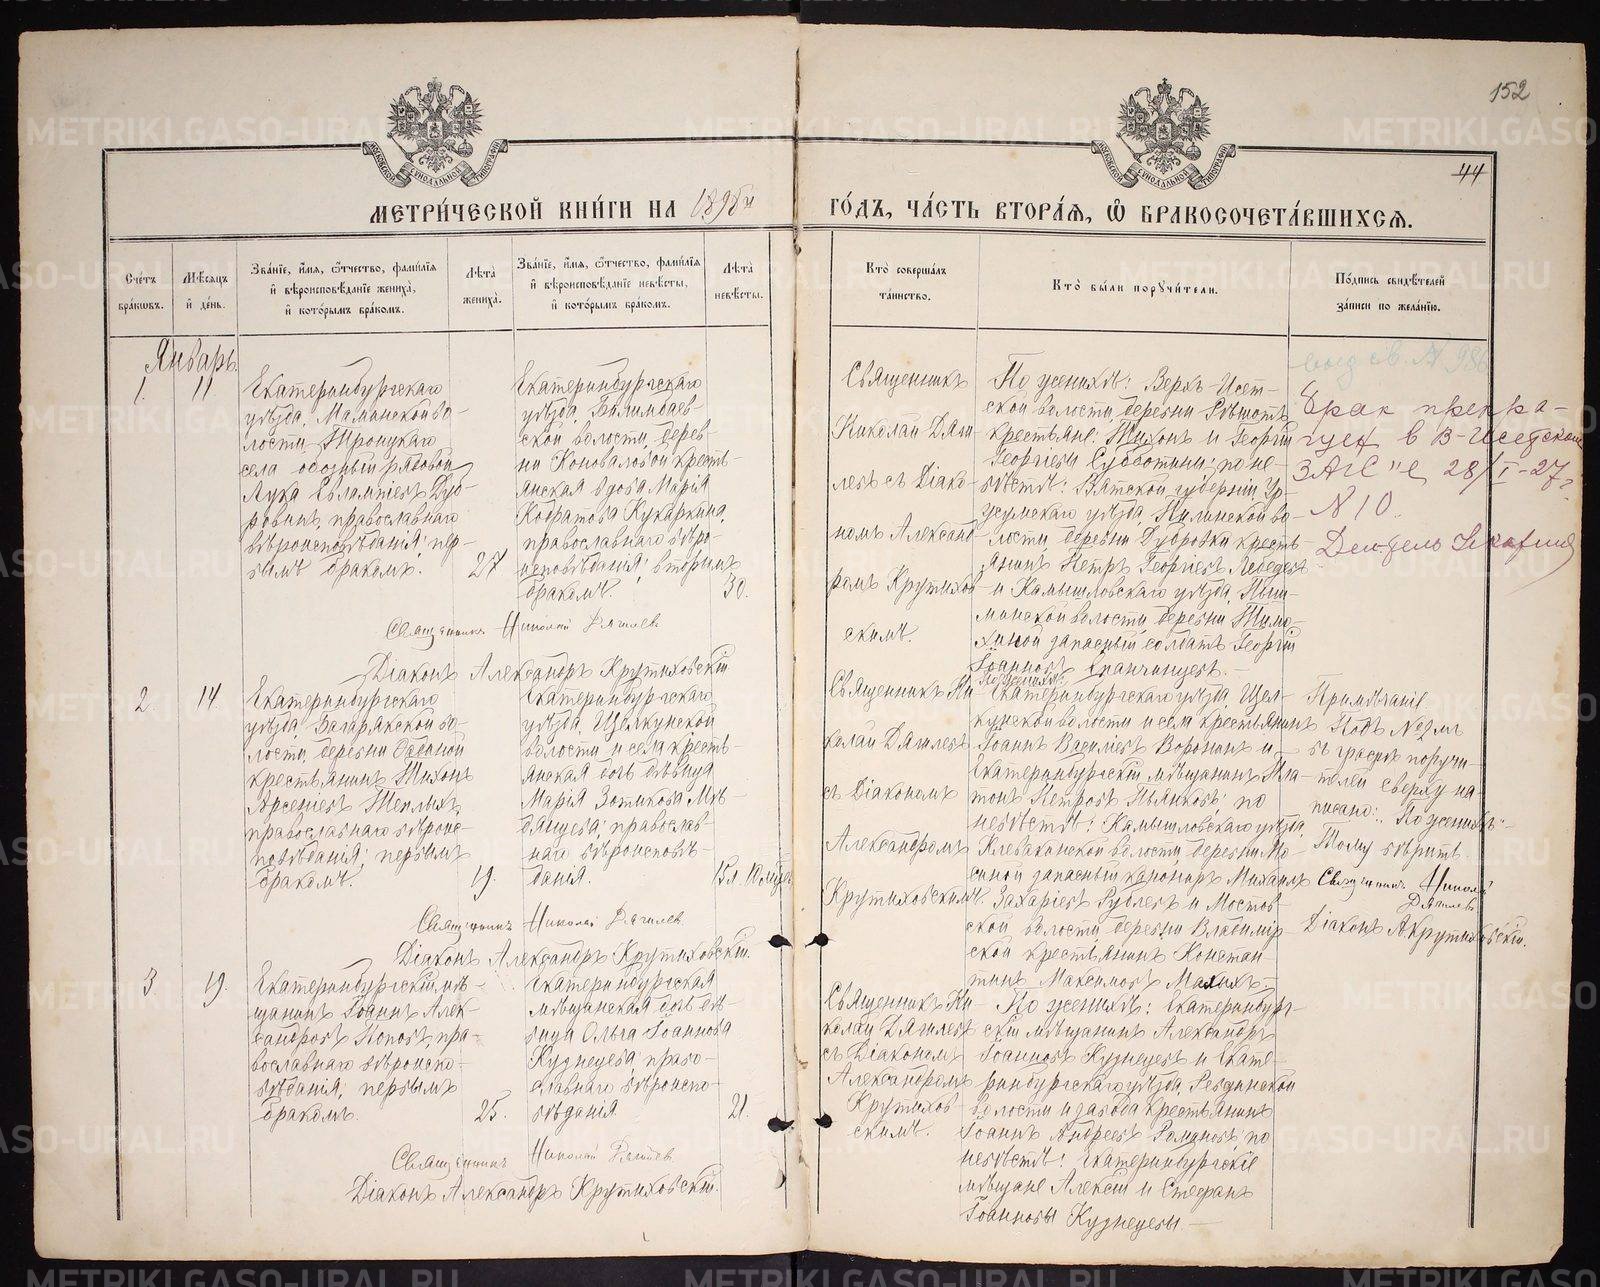 152
44
МЕТРИ́ЧЕСКОЙ КНИ́ГИ НА 1898й ГО́ДЪ, ЧА́СТЬ ВТОРА́Я, Ѡ БРАКОСОЧЕТА́ВШИХСЯ.
Сче́тъ бра́ковъ.
Мѣ́сяцъ и҆ де́нь.
Зва́нїе, и҆́мя, ѻ҆́тчество, фами́лїя
и҆ вѣроисповѣ́данїе жениха̀,
и҆ кото́рымъ бра́комъ.
Лѣ́та жениха̀.
Зва́нїе, и҆́мя, ѻ҆́тчество, фами́лїя
и҆ вѣроисповѣ́данїе невѣ́сты,
и҆ кото́рымъ бра́комъ.
Лѣ́та невѣ́сты.
Кто̀ соверша́лъ
та́инство.
Кто̀ бы́ли порꙋчи́тели.
По́дпись свидѣ́телей
за́писи по жела́нїю.
Январь
1.
11
Екатеринбургскаго
уѣзда, Маминской во-
лости, Троицкаго
села обозный рядовой
Лука Евлампіевъ Дуб-
ровинъ, православнаго
вѣроисповѣданія; пер-
вымъ бракомъ.
27
Екатеринбургскаго
уѣзда, Билимбаев-
ской волости, дерев-
ни Коноваловой кресть-
янская вдова Марія
Кодратова Кукаркина,
православнаго вѣро-
исповѣданія; вторымъ
бракомъ.
30.
Священникъ
Николай Дяги-
левъ съ Діако-
номъ Александ-
ромъ Крутихов-
скимъ.
По женихѣ: Верхъ-Исет-
ской волости деревни Рѣшотъ
крестьяне: Тихонъ и Георгій
Георгіевы Субботины; по не-
вѣстѣ: Вятской губерніи Ур-
жумскаго уѣзда, Пилинской во-
лости деревни Дубровки кресть-
янинъ Петръ Георгіевъ Лебедевъ
и Камышловскаго уѣзда, Пыш-
минской волости деревни Тимо-
хиной запасный солдатъ Георгій
Іоанновъ Епанчинцевъ.
Брак прекра-
щен в В-Исетском
ЗАГС"е 28/I-27г.
N 10.
Священникъ Николай Дягилев
Діаконъ Александръ Крутиховскій
2.
14.
Екатеринбургскаго
уѣзда, Багарякской во-
лости, деревни
крестьянинъ Тихонъ
Арсеніевъ Теплыхъ,
православнаго вѣроис-
повѣданія; первымъ
бракомъ.
19.
Екатеринбургскаго
уѣзда, Щелкунской
волости и села кресть-
янская дочь дѣвица
Марія Зотикова
православ-
наго вѣроисповѣ-
данія.
Священникъ Ни-
колай Дягилевъ
съ Діакономъ
Александромъ
Крутиховскимъ.
По женихѣ:
Екатеринбургскаго уѣзда, Щел-
кунской волости и села крестьянинъ
Іоаннъ Васильевъ Воронинъ и
Екатеринбургскій мѣщанинъ Пла-
тонъ Петровъ Пьянковъ; по
невѣстѣ: Камышловскаго уѣзда,
Клевакинской волости деревни Мо-
синой запасный канониръ Михаилъ
Захаріевъ Рублевъ и Мостов-
ской волости деревни Владимір-
ской крестьянинъ Констан-
тинъ Максимовъ Малыхъ
Примѣчаніе
Подъ № 2мъ
въ графѣ поручи-
телей сверху на-
писано: „По женихѣ"
Тому вѣрить.
Священникъ Николай
Дягилевъ
Діаконъ А Крутиховскій.
Священникъ Николай Дягилев
Діаконъ Александръ Крутиховскій.
3.
19.
Екатеринбургскій мѣ-
щанинъ Іоаннъ Алек-
сандровъ Поповъ, пра-
вославнаго вѣроиспо-
вѣданія, первымъ
бракомъ.
25.
Екатеринбургская
мѣщанская дочь дѣ-
вица Ольга Іоаннова
Кузнецова, право-
славнаго вѣроиспо-
вѣданія
21.
Священникъ Ни-
колай Дягилевъ
съ Діакономъ
Александромъ
Крутихов-
скимъ.
По женихѣ: Екатеринбург-
скій мѣщанинъ Александръ
Іоанновъ Кузнецовъ и Екате-
ринбургскаго уѣзда, Ревдинской
волости и завода крестьянинъ
Іоаннъ Андреевъ Романовъ; по
невѣстѣ: Екатеринбургскіе
мѣщане Алексій и Стефанъ
Іоанновы Кузнецовы.
Священникъ Николай Дягилев
Діаконъ Александръ Крутиховскій.
METRIKI.GASO-URAL.RU